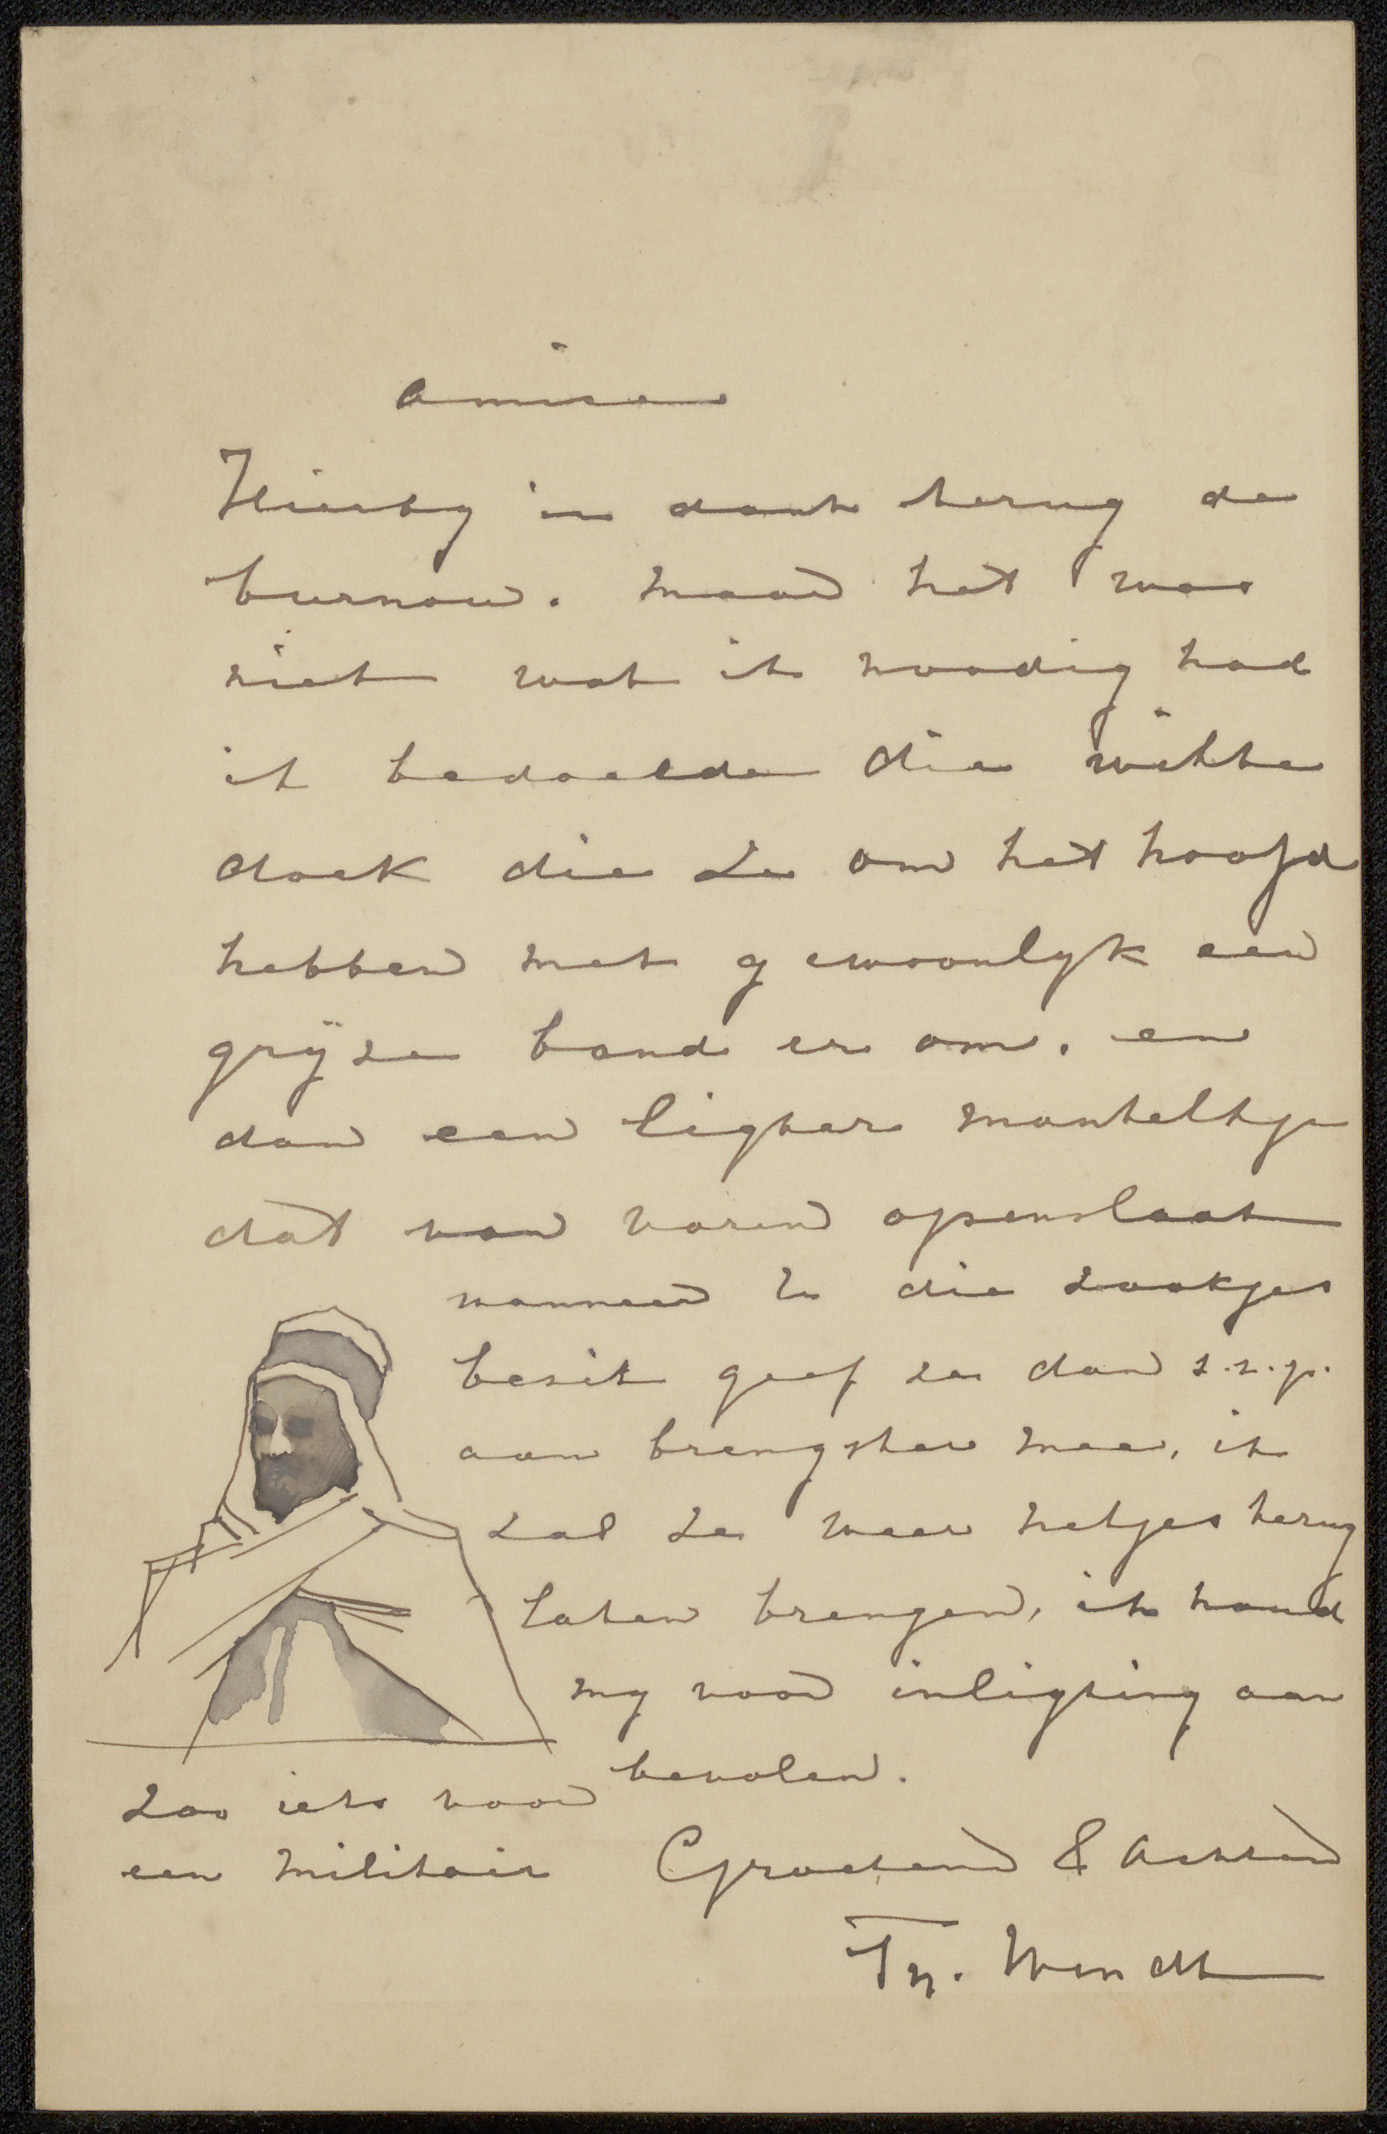 amice
Hierby in dank terug de
burnou. maar het was
niet wat ik noodig had
ik bedoelde die witte
doek die ze om het hoofd
hebben met gewoonlyk een
grijze band er om. en
dan een ligter manteltje
dat van voren openslaat
wanneer U die zaakjes
bezit geef ze dan s.v.p.
aan brengster mee, ik
zal ze weer netjes terug
laten brengen, ik houd
my voor inligting aan
bevolen.
zoo iets voor
een militair
Groetend & achtend
Wendt